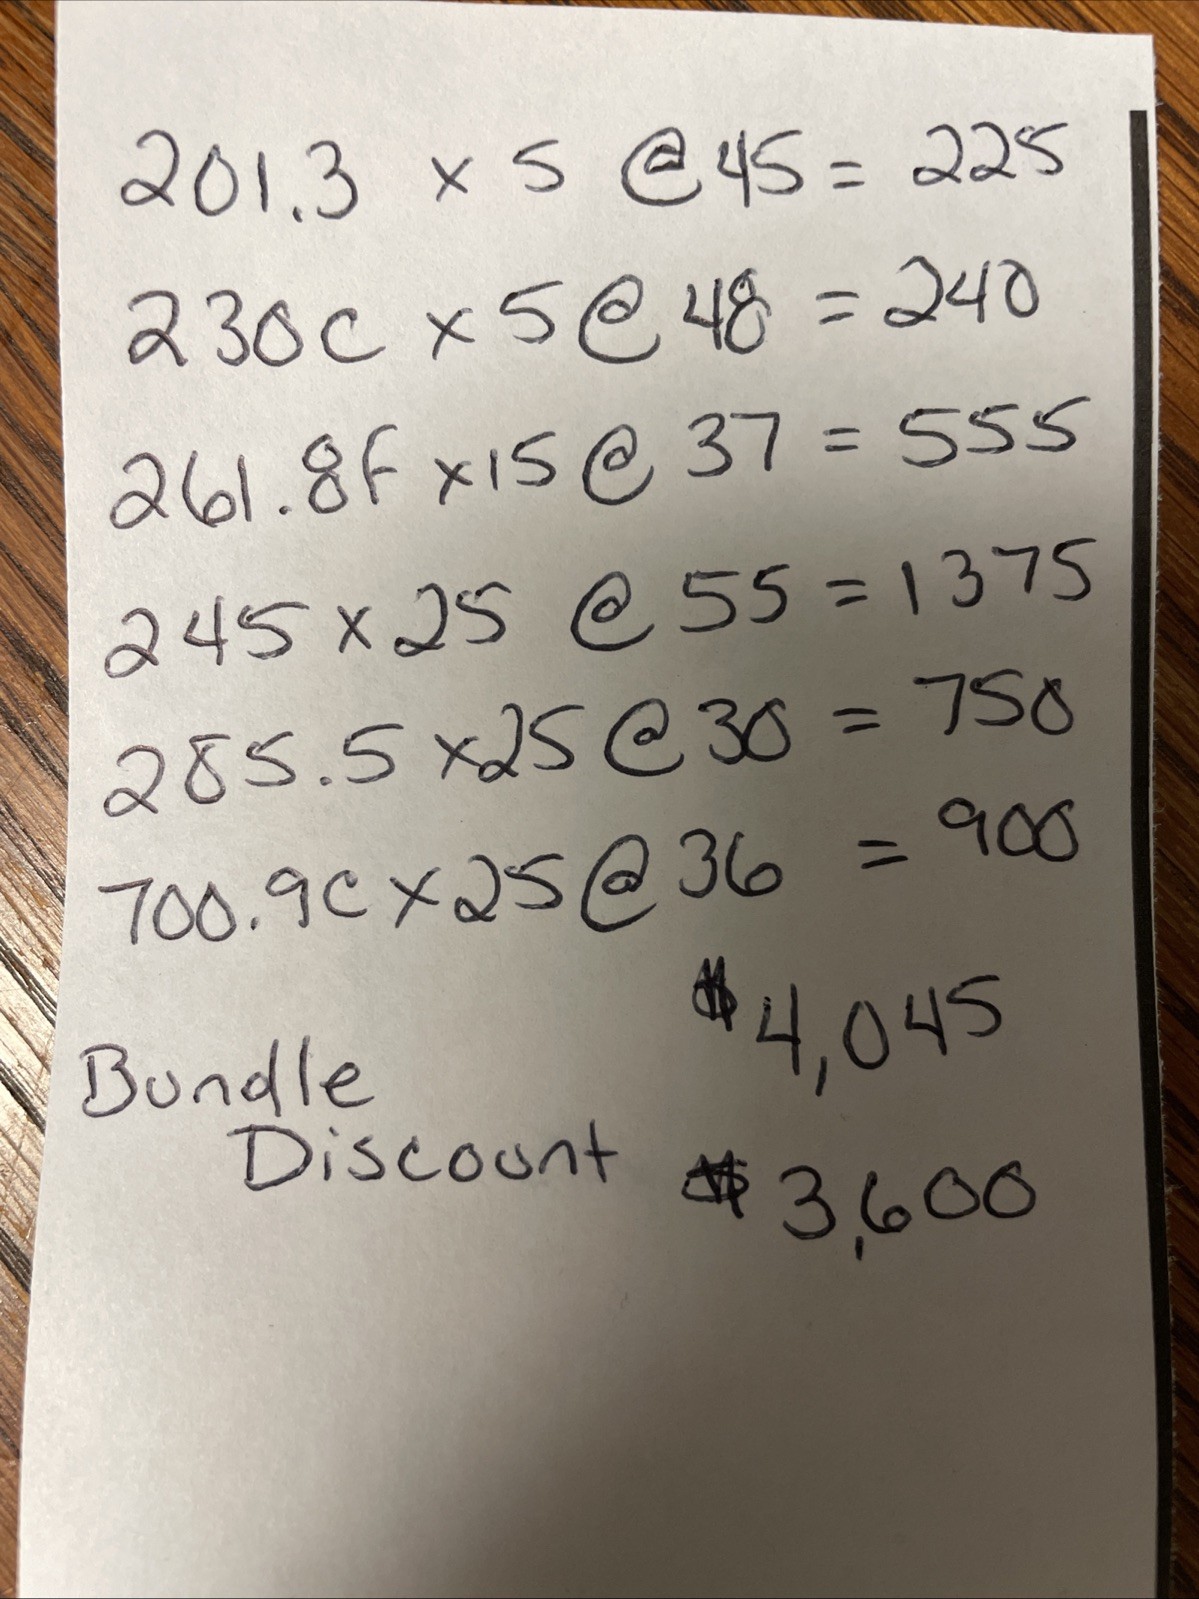 201.3 x 5 @ 45 = 225
230C x 5 @ 48 = 240
261.8F x 15 @ 37 = 555
245 x 25 @ 55 = 1375
285.5 x 25 @ 30 = 750
700.9C x 25 @ 36 = 900
$4,045
Bundle
Discount $3,600